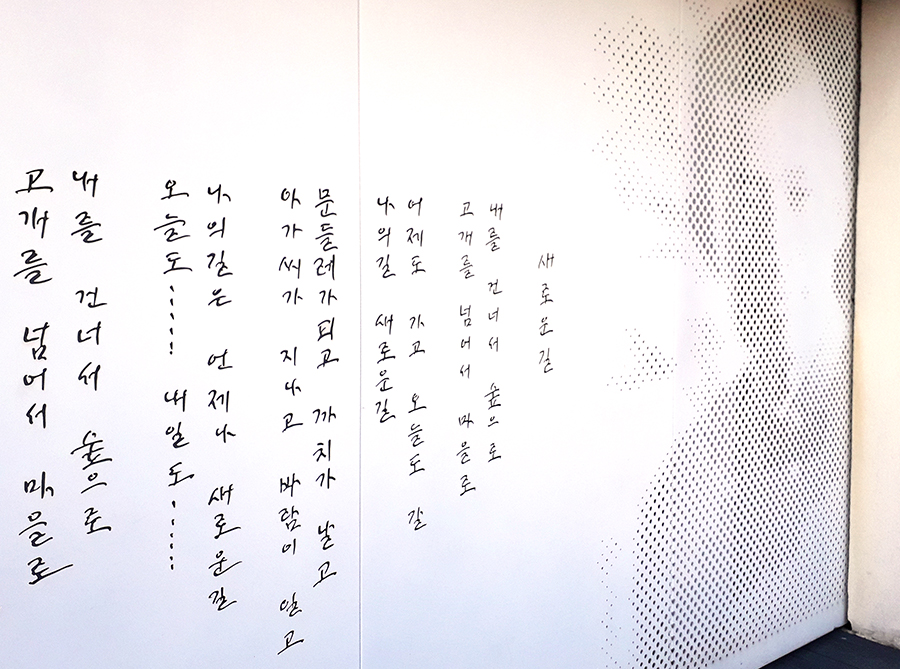 새로운길
내를 건너서 숲으로
고개를 넘어서 마을로
어제도 가고 오늘도 갈
나의길 새로운길
문들레가피고 까치가 날고
아가씨가 지나고 바람이 일고
나의길은 언제나 새로운길
오늘도...... 내일도......
내를 건너서 숲으로
고개를 넘어서 마을로